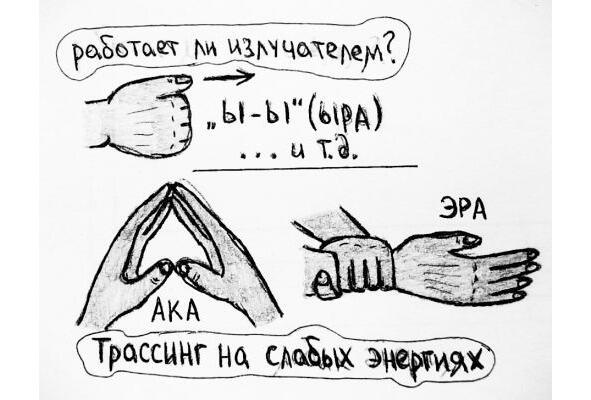 работает ли излучателем?
„Ы-Ы“ (ЫРА)
... и т.д.
ЭРА
АКА
Трассинг на слабых энергиях